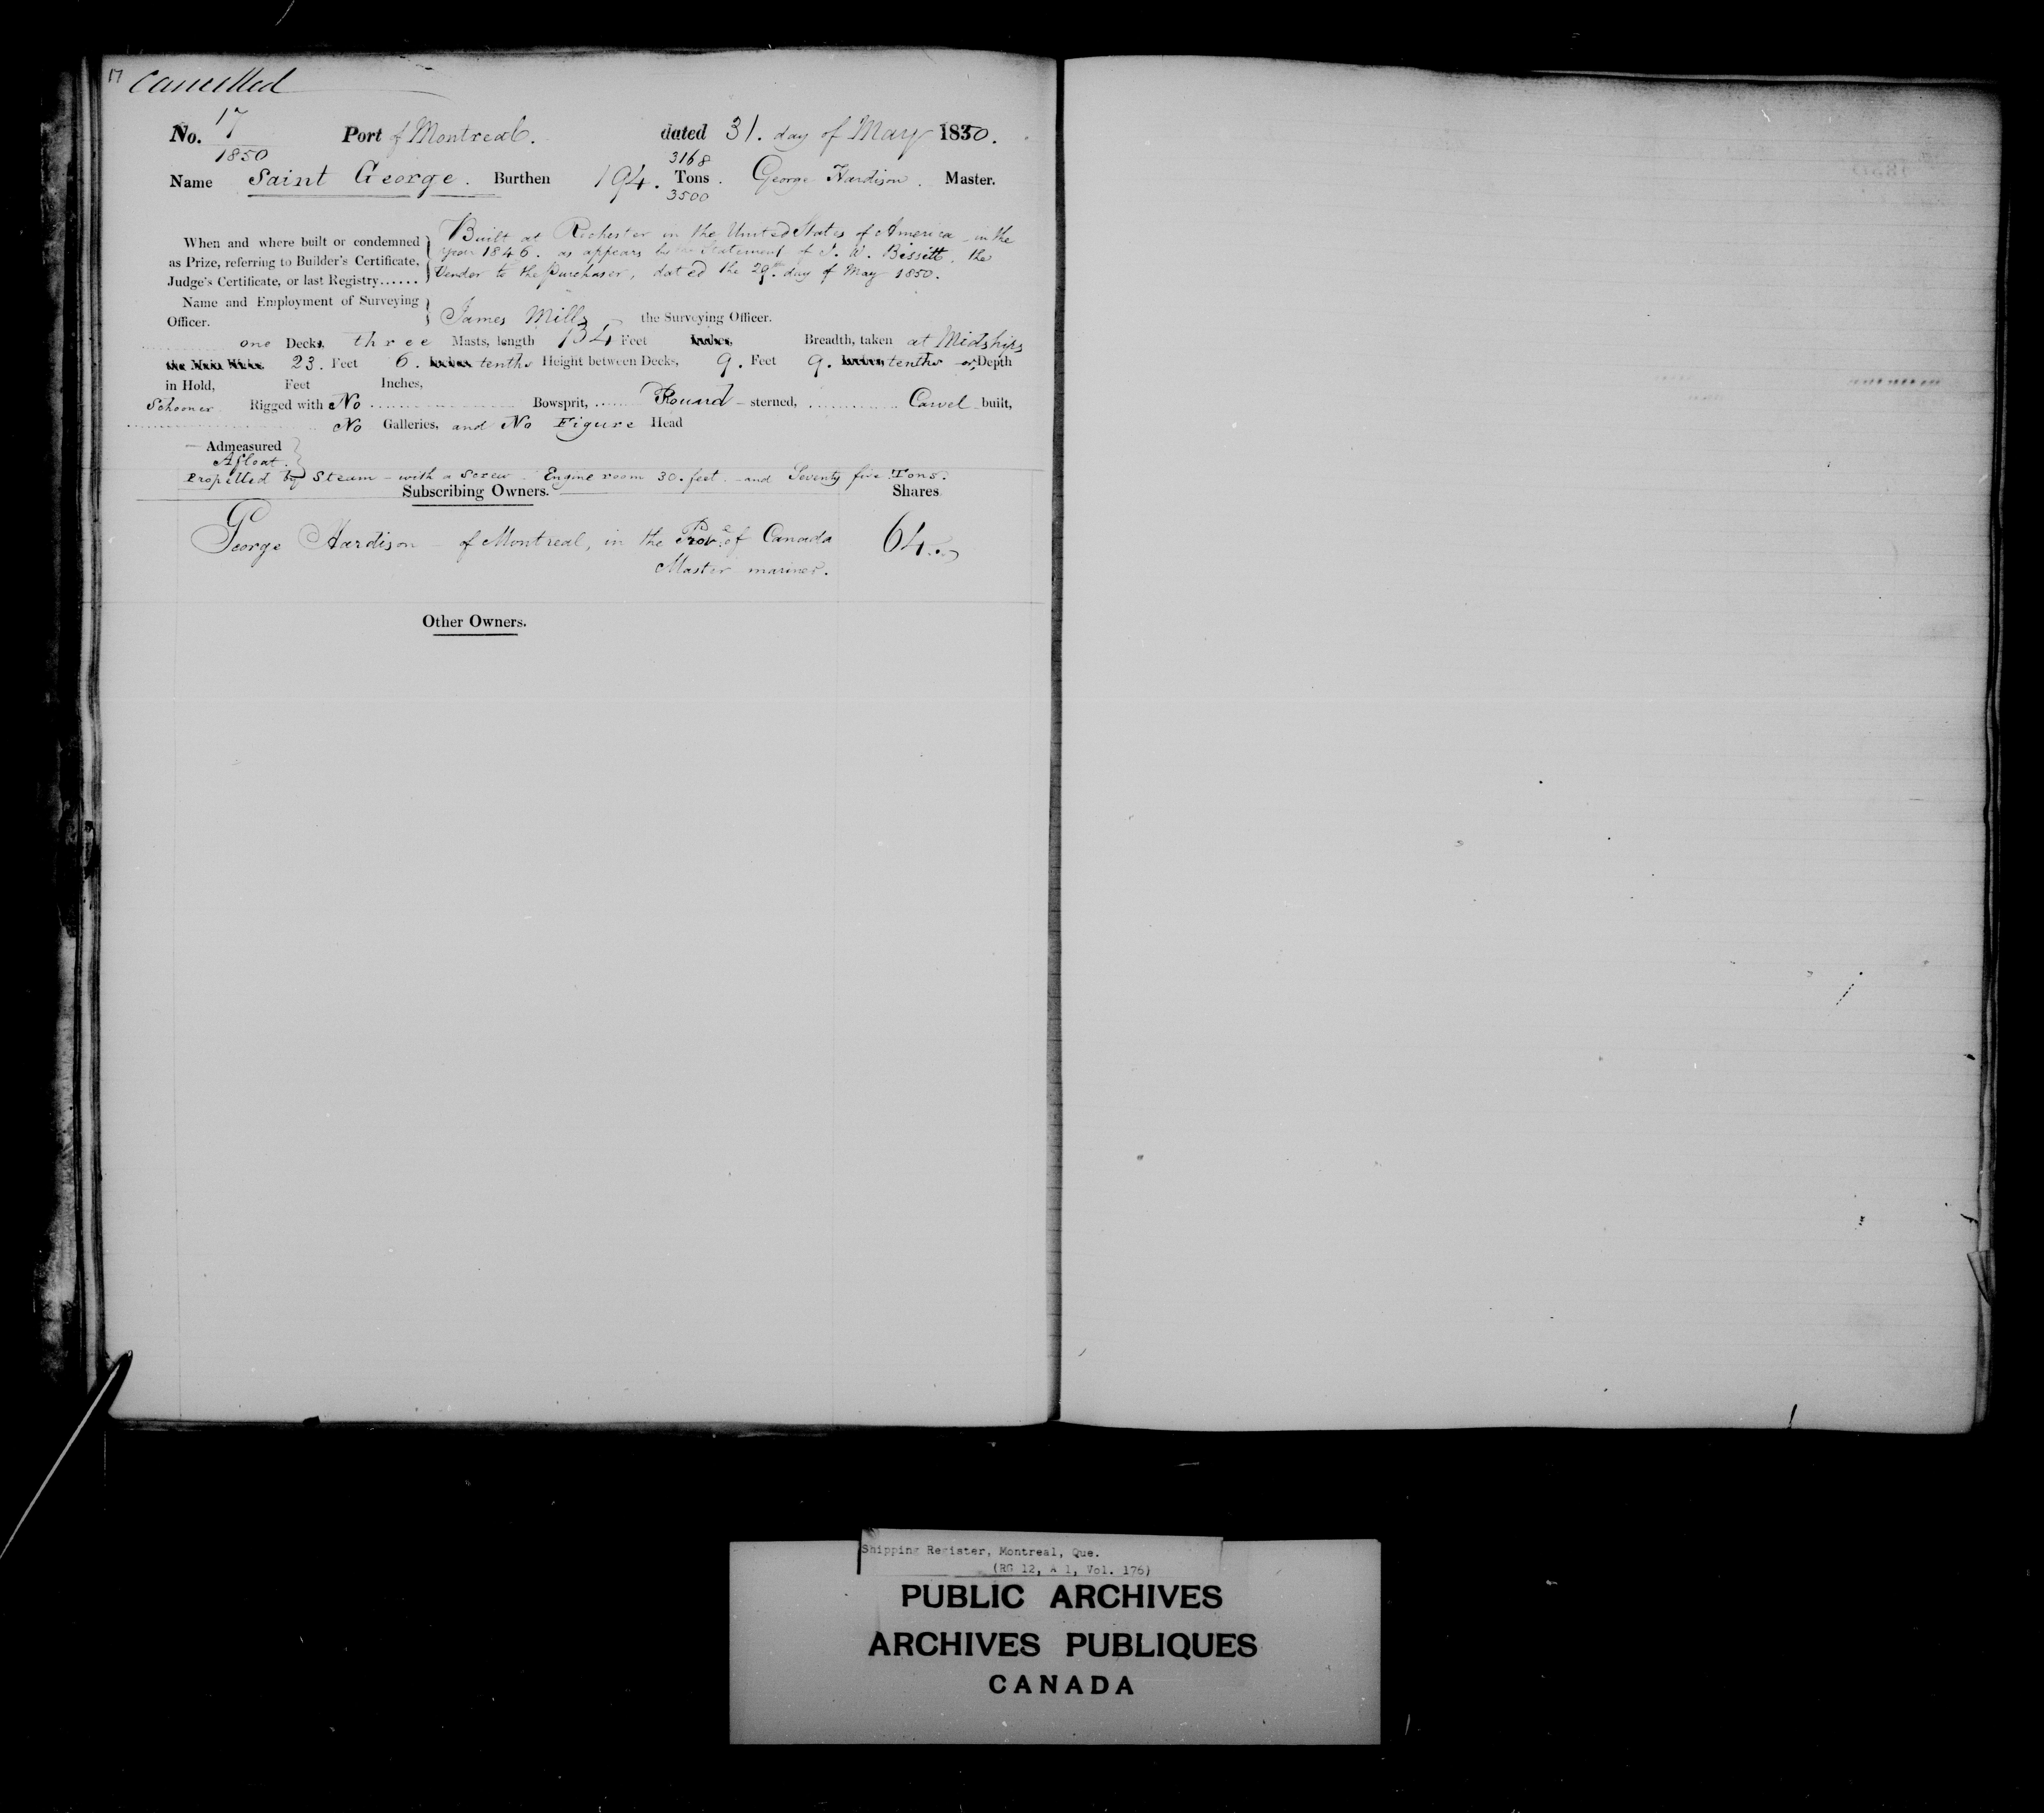 17 Cancelled
No. 17 Port of Montreal. dated 31. day of May 1850.
1850 3168
Name Saint George. Burthen 194. Tons. George Hardison. Master.
3500
Built at Rochester in the United States of America in the
When and where built or condemned year 1846. as appears by the Statement of J. W. Bissett, the
as Prize, referring to Builder's Certificate, Vender to the Purchaser, dated the 29th day of May 1850.
Judge's Certificate, or last Registry......
Name and Employment of Surveying
Officer. James Mills the Surveying Officer.
one Decks, three Masts, length 134 Feet Inches, Breadth, taken at Midships
the Main Wales 23. Feet 6. Inches tenths Height between Decks, 9. Feet 9. Inches tenths or, Depth
in Hold, Feet Inches,
Schooner Rigged with No Bowsprit, Round - sterned, Carvel built,
No Galleries, and No Figure Head
Admeasured
Afloat.
Propelled by Steam - with a Screw. Engine room 30. feet. and Seventy five Tons.
Subscribing Owners. Shares
George Hardison of Montreal, in the Prov.ce of Canada 64.
Master mariner.
Other Owners.
Shipping Register, Montreal, Que.
(RG 12, A 1, Vol. 176)
PUBLIC ARCHIVES
ARCHIVES PUBLIQUES
CANADA